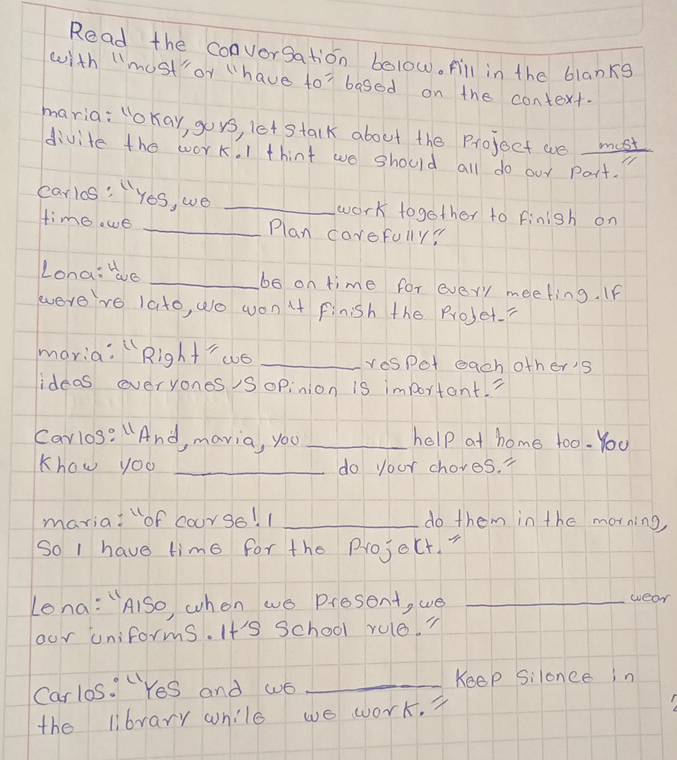 Read the conversation below. Fill in the blanks
with "must" or "have to" based on the context.
maria: "okay, guys, let stalk about the Project we must
divite the work. I thint we should all do our part."
carlos: "Yes, we ________ work together to finish on
time. we ________ Plan carefully."
Lona: "we ________ be on time for every meeting. If
were're late, we won't finish the Projet."
maria: "Right" we ________ respet each other's
ideas everyones,s opinion is important."
Carlos: "And, maria, you ________ help at home too. You
Know you ________ do your chores."
maria: "of course! I ________ do them in the morning,
So I have time for the Project."
Lona: "Also, when we present, we ________ wear
our uniforms. It's School rule."
Carlos: "Yes and we ________ Keep silence in
the library while we work."